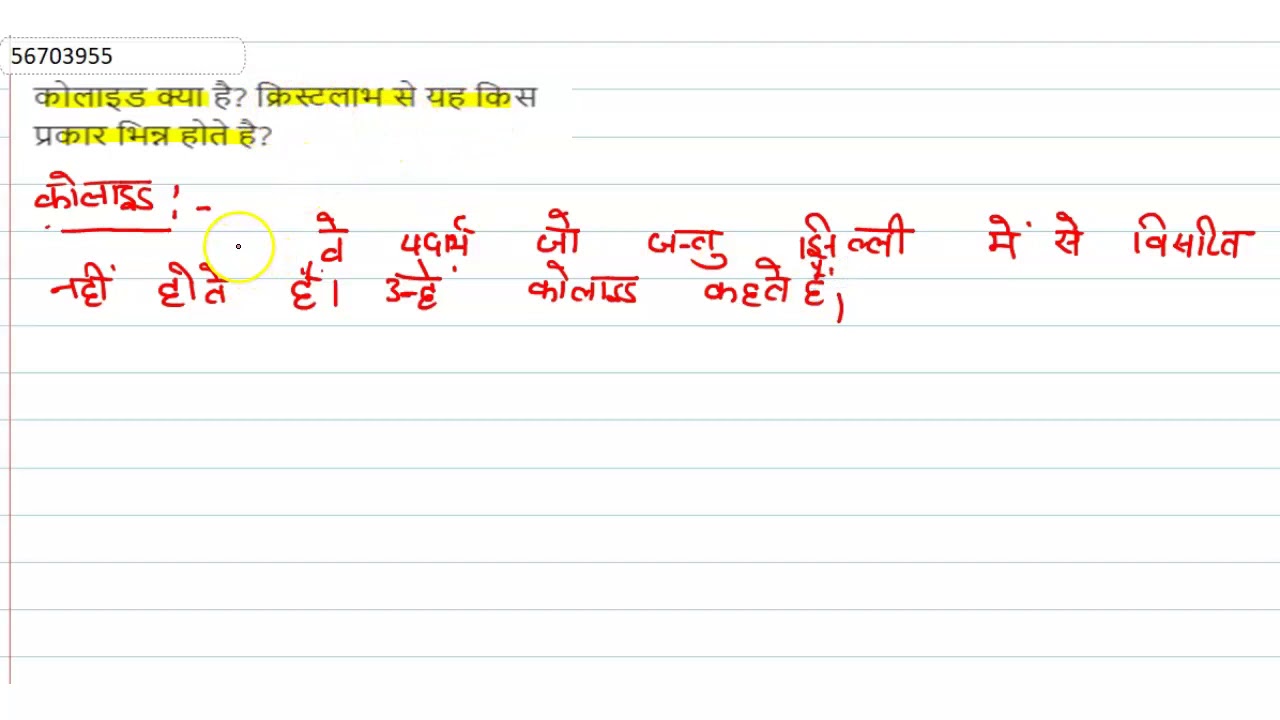 56703955
कोलाइड क्या है? क्रिस्टलाभ से यह किस
प्रकार भिन्न होते है?
कोलाइड :-
वे पदार्थ जो जन्तु झिल्ली में से विसरित
नहीं होते हैं। उन्हें कोलाइड कहते हैं,